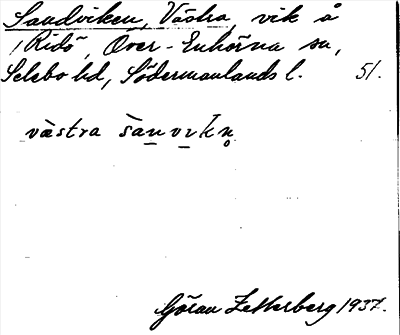 Sandviken, Västra, vik å
Ridö, Över-Enhörna sn,
Selebo hd, Södermanlands l. 51.
västra sanvikn̥
Göran Zetterberg 1937.